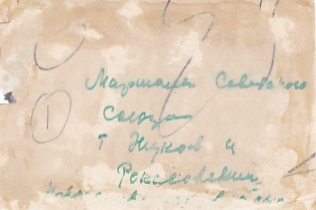 Маршалы Советского
Союза
①
т Жуков и
Рокоссовский